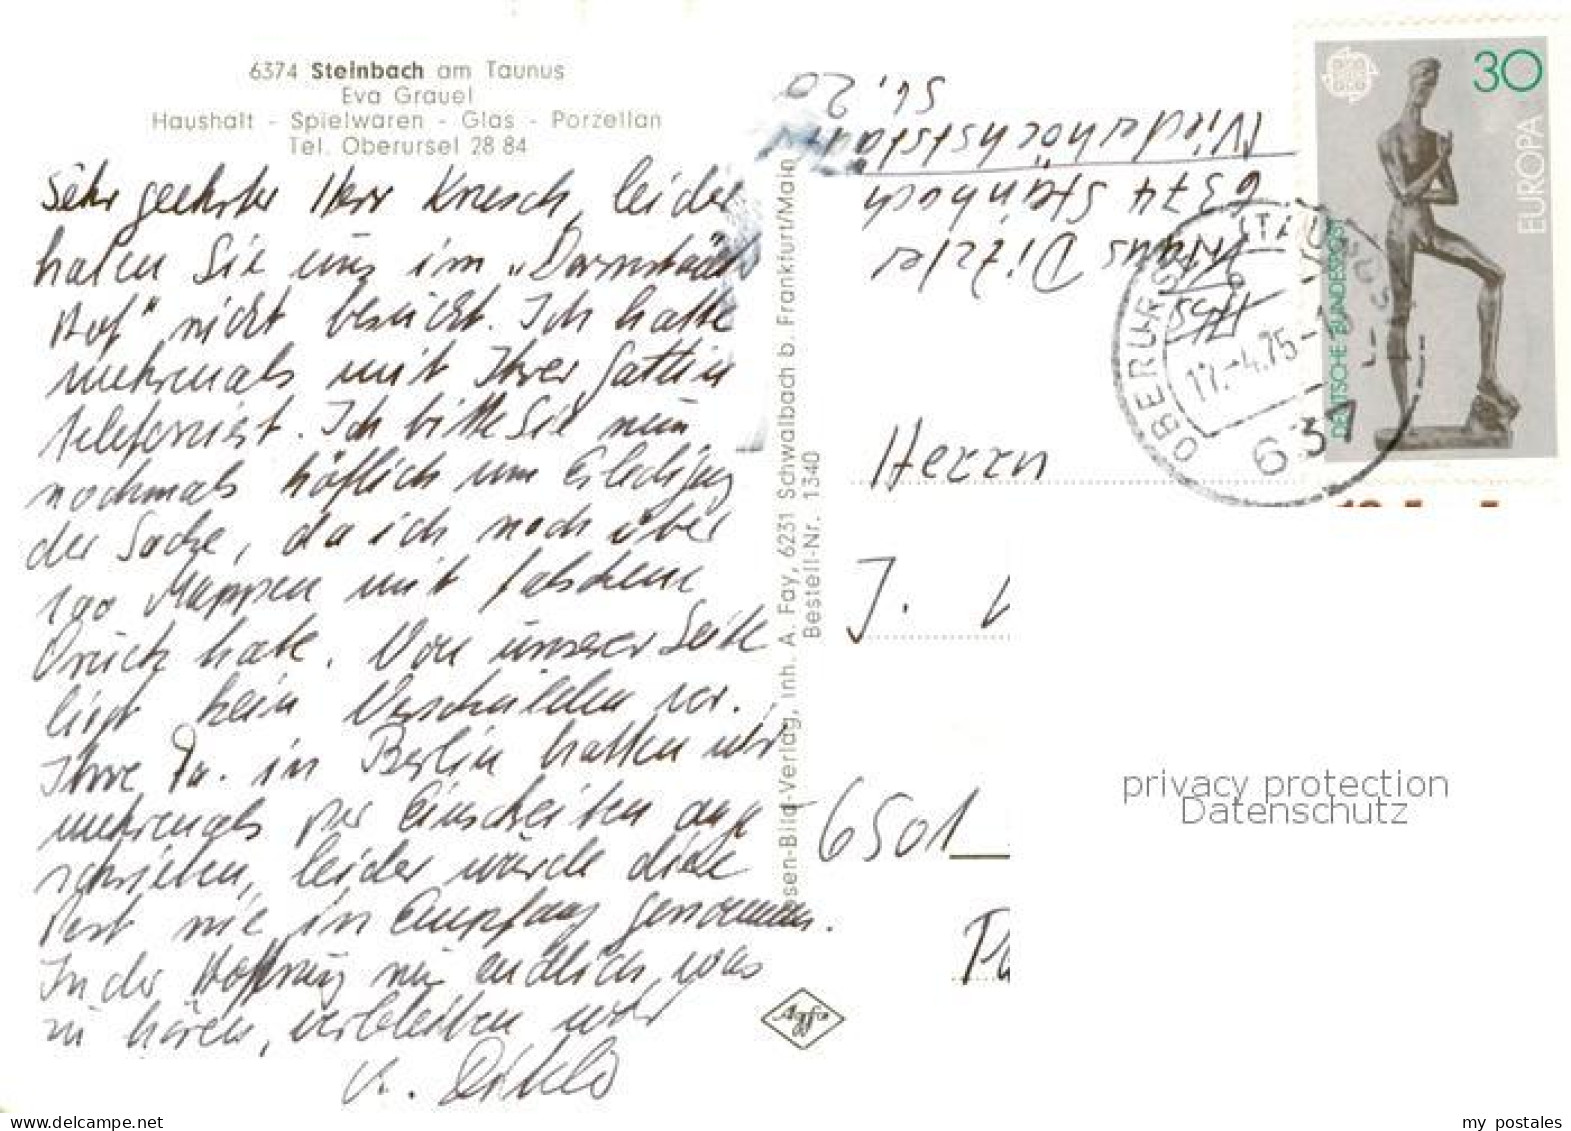 6374 Steinbach am Taunus
Eva Grauel
Haushalt - Spielwaren - Glas - Porzellan
Tel. Oberursel 28 84
Sehr geehrter Herr Knesch, leider
haben Sie uns im "Darmstädt
Hof" nicht besucht. Ich hatte
mehrmals mit Ihrer Gattin
telefoniert. Ich bitte Sie nun
nochmals höflich um Erledigung
der Sache, da ich noch über
100 Mappen mit falschem
Druck habe. Von unserer Seite
liegt kein Verschulden vor.
Ihre Fa. in Berlin hatten wir
mehrmals per Einschreiben ange
schrieben, leider wurde diese
Post nie in Empfang genommen.
In der Hoffnung nun endlich was
zu hören, verbleiben wir
Abs.
Klaus Ditzler
6374 Steinbach
Niederhöchstädter
St. 20
osen-Bild-Verlag, Inh. A. Fay, 6231 Schwalbach b. Frankfurt/Main
Bestell-Nr. 1340
Agfa
30
EUROPA
DEUTSCHE BUNDESPOST
OBERURSEL
17.-4.75-
637
Herrn
J.
6501
privacy protection
Datenschutz
my postales